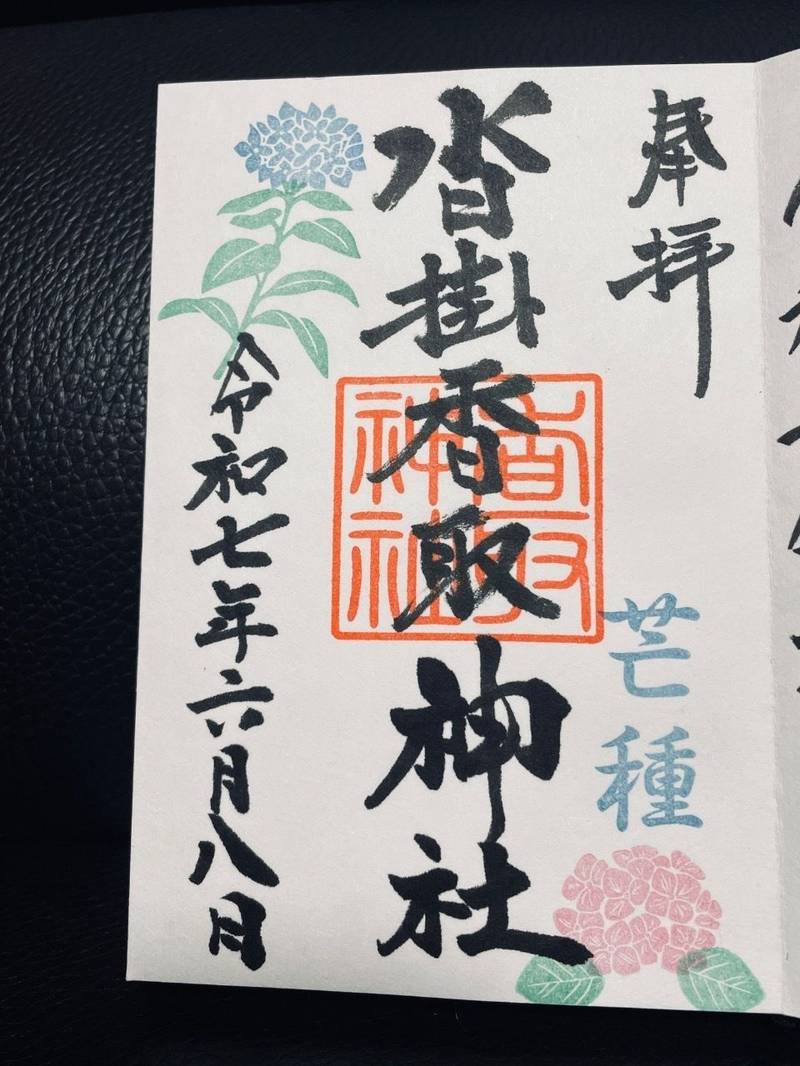 奉拝
芒種
沓掛香取神社
香取神社
令和七年六月八日